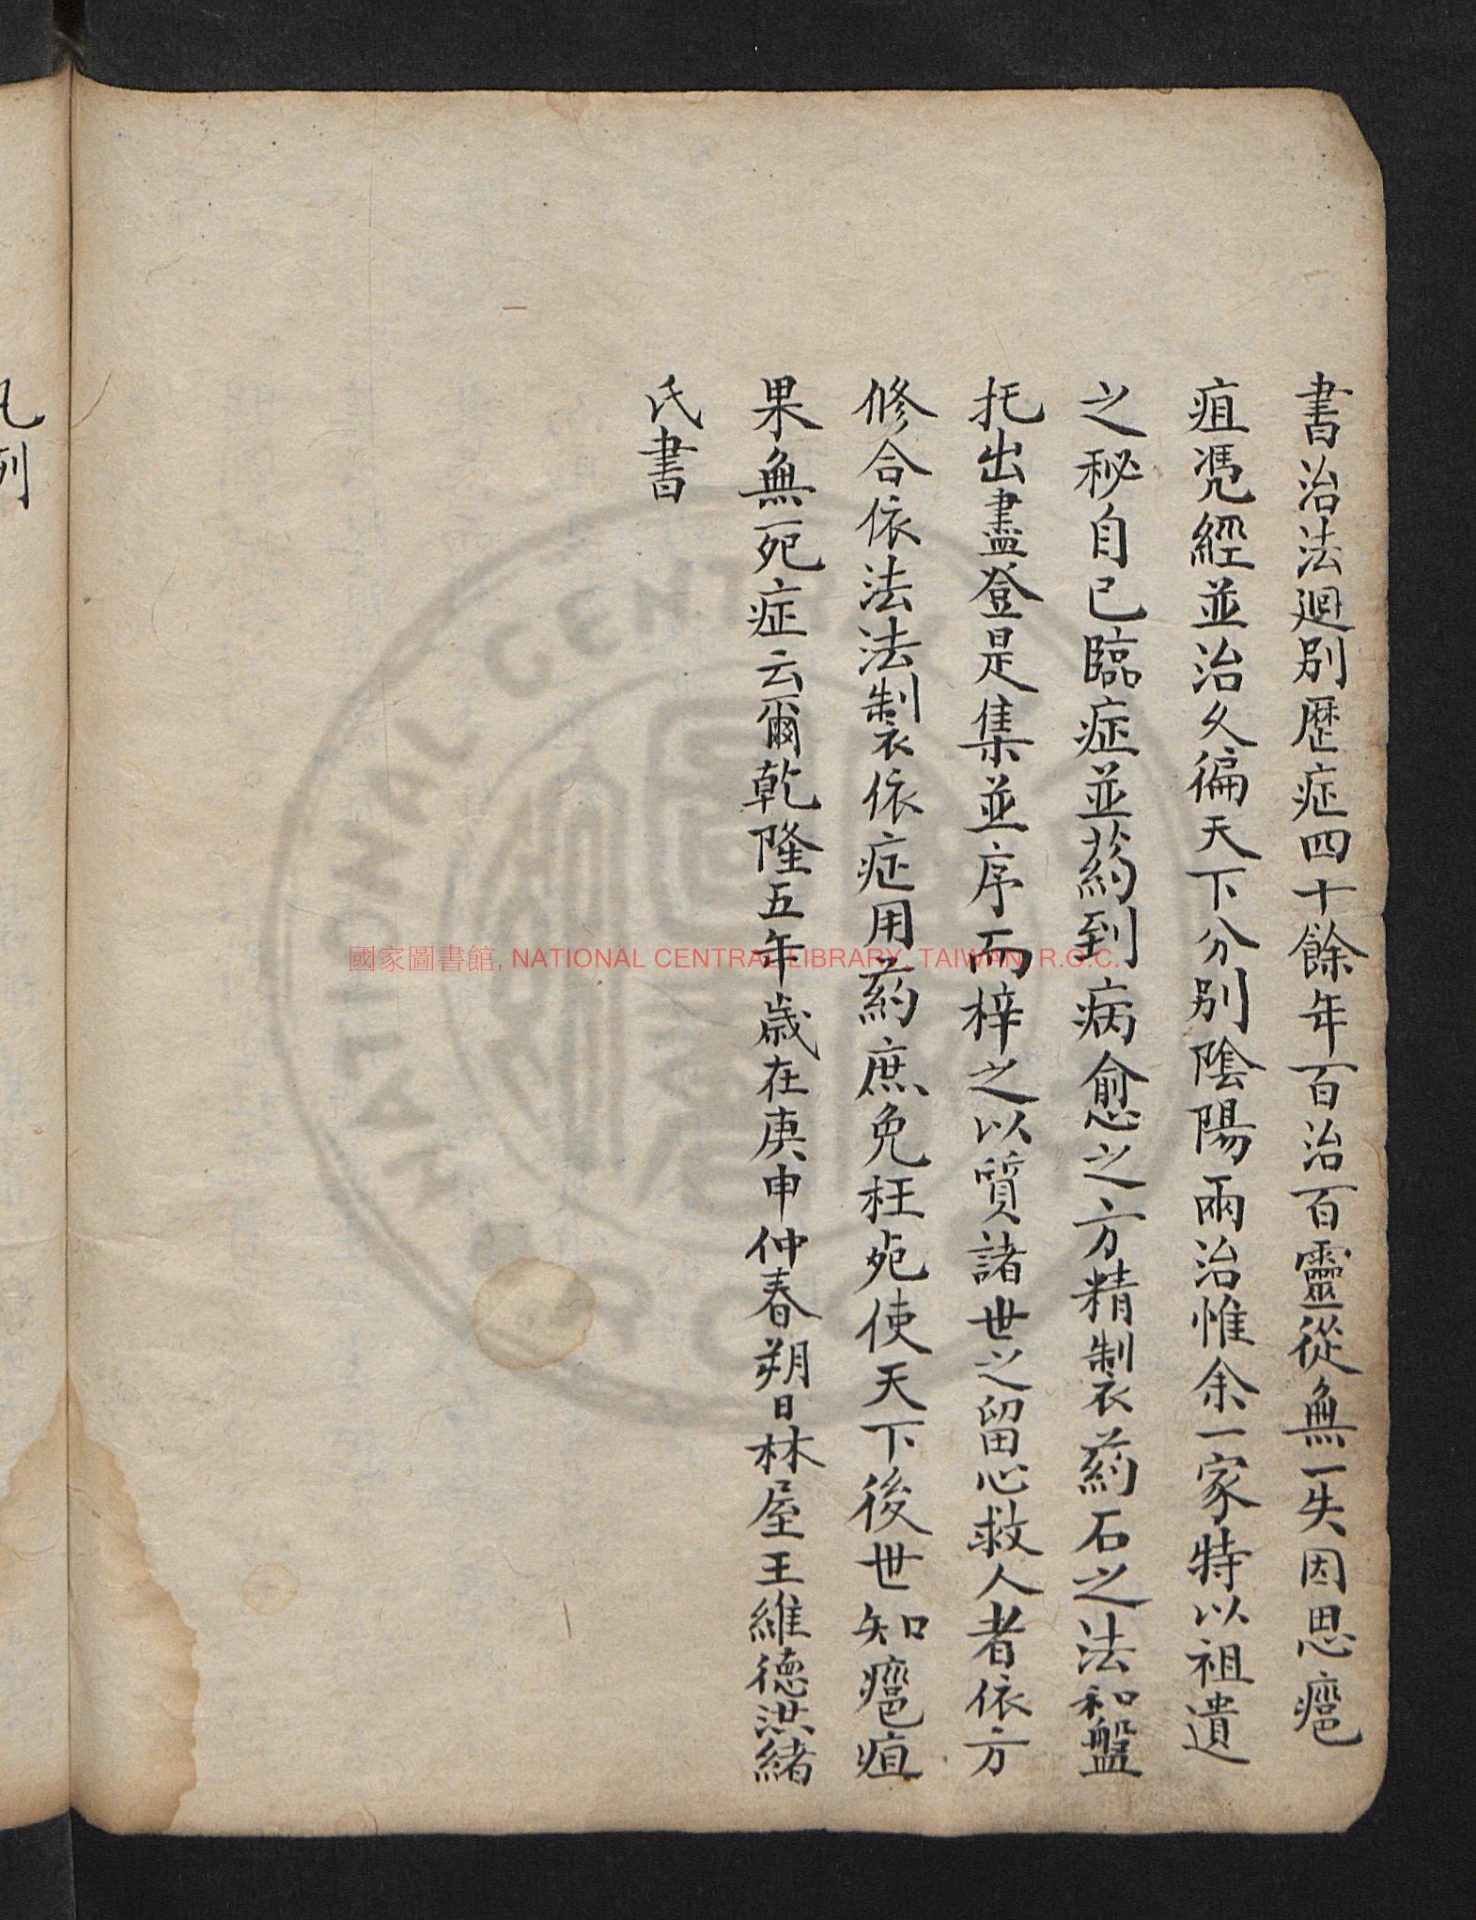 書治法迥別歷症四十餘年百治百靈從無一失因思癰
疽凴經並治久徧天下分別陰陽兩治惟余一家特以祖遺
之秘自己臨症並葯到病愈之方精製葯石之法和盤
托出盡登是集並序而梓之以質諸世之留心救人者依方
修合依法法製依症用葯庶免枉死使天下後世知癰疽
果無一死症云爾乾隆五年歲在庚申仲春朔日林屋王維德洪緒
氏書
凡列
國家圖書館, NATIONAL CENTRAL LIBRARY, TAIWAN, R.O.C.